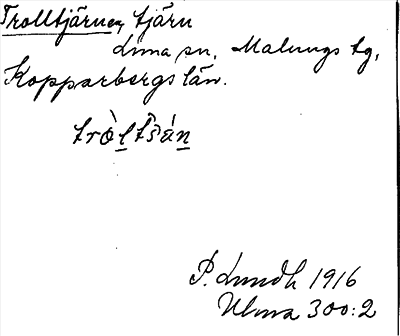 Trolltjärnen, tjärn
Lima sn, Malungs tg,
Kopparbergs län.
trò̀l̲tšàn̲
P. Lundh 1916
Ulma 300:2